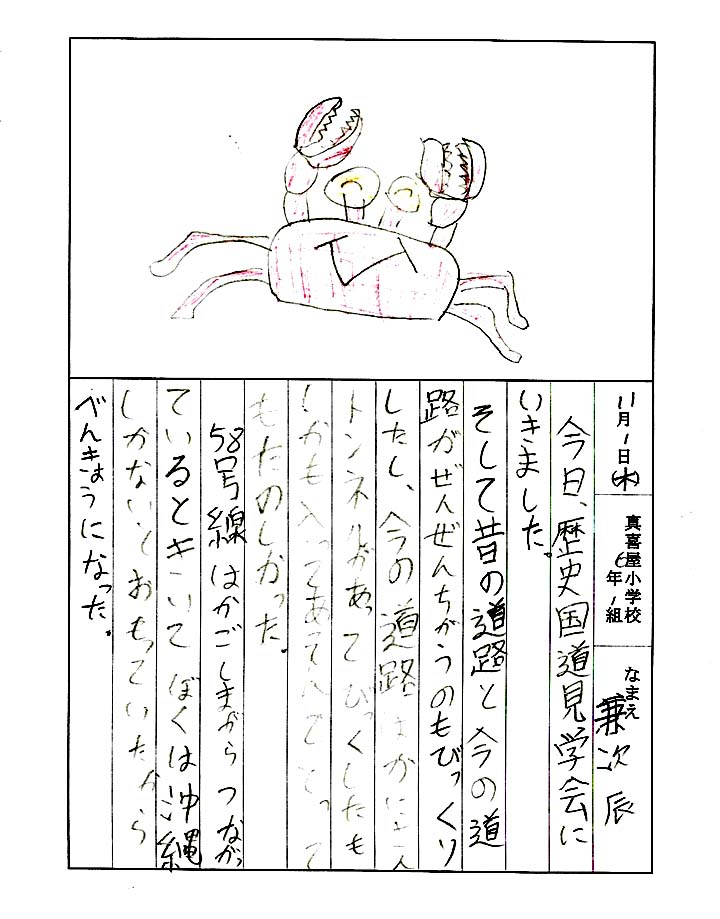 11月1日(水)
真喜屋小学校
6年1組
なまえ
兼次 辰
今日、歴史国道見学会に
いきました。
そして昔の道路と今の道
路がぜんぜんちがうのもびっくり
したし、今の道路はかにさん
トンネルがあってびっくりしたも
しかも入ってあそんでとって
もたのしかった。
58号線はかごしまからつながっ
ているときいてぼくは沖縄
しかないとおもっていたから
べんきょうになった。